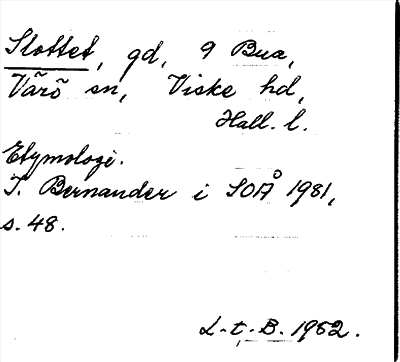 Slottet, gd, 9 Bua,
Värö sn, Viske hd,
Hall. l.
Etymologi.
T. Bernander i SOÅ 1981,
s. 48.
L-t. B. 1982.